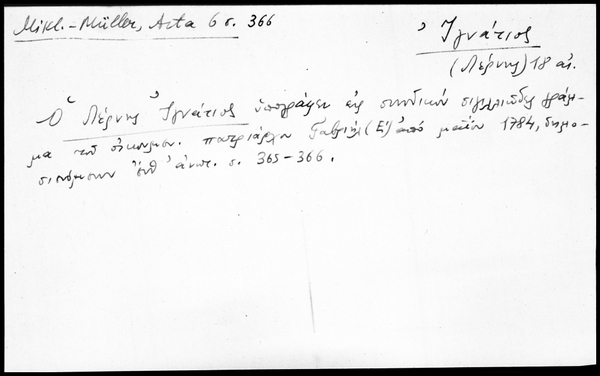 Mikl.-Müller, Acta 6 σ. 366
Ἰγνάτιος
(Λέρνης) 18 αἰ.
Ὁ Λέρνης Ἰγνάτιος ὑπογράφει εἰς συνοδικόν σιγιλλιῶδες γράμ-
μα τοῦ οἰκουμεν. πατριάρχου Γαβριήλ (Ε') ἀπό μαΐου 1784, δημο-
σιευόμενον ἐνθ' ἀνωτ. σ. 365-366.